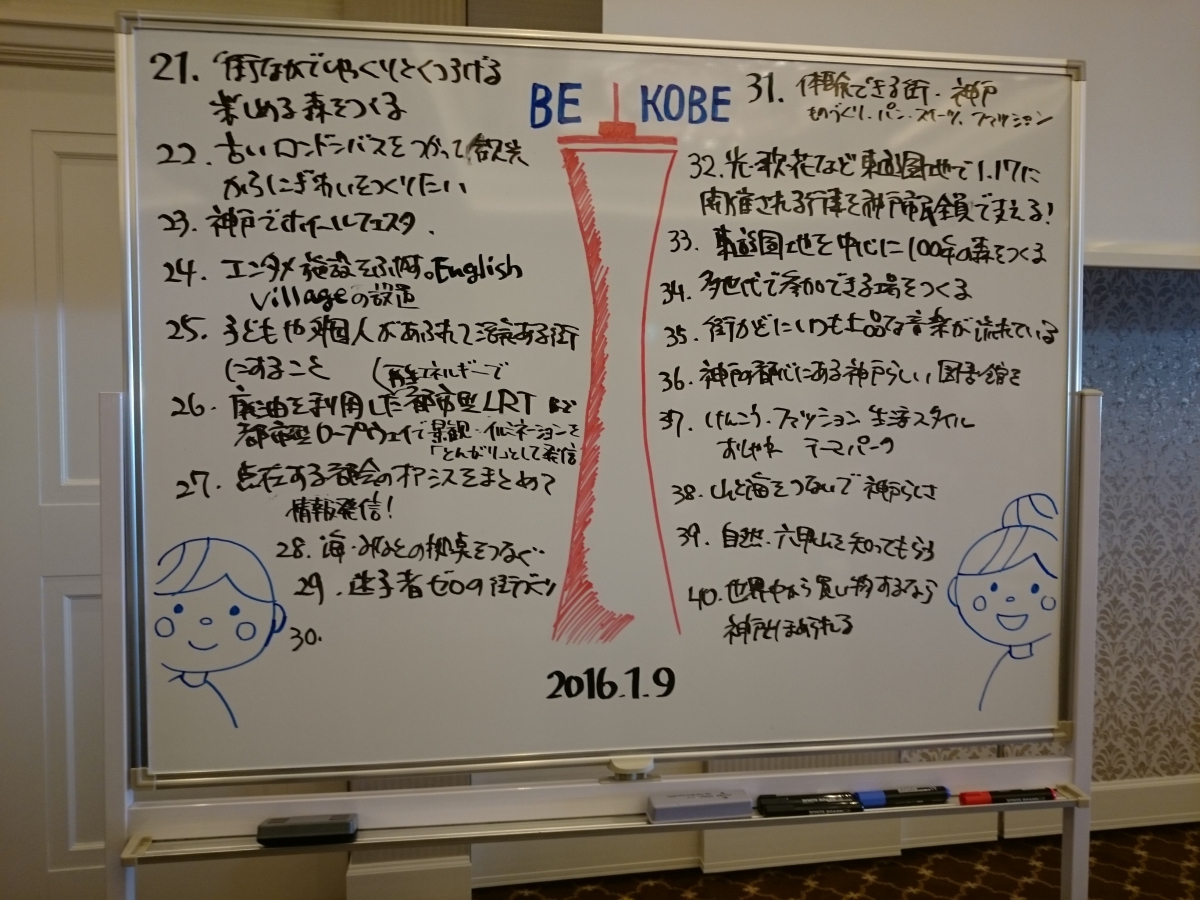 21. 街なかでゆっくりとくつろげる
楽しめる森をつくる
22. 古いロンドンバスをつかって観光
からにぎわいをつくりたい
23. 神戸でホイールフェスタ.
24. エンタメ施設を。English
Villageの設置
25. 子どもや外国人があふれて活気ある街
にすること
(再生エネルギーで
26. 廃油を利用した都市型LRTなど
都市型ロープウェイで景観・イルミネーションを
「とんがり」として発信
27. 点在する都会のオアシスをまとめて
情報発信!
28. 海・みなとの拠点をつなぐ
29. 迷子者ゼロの街づくり
30.
BE KOBE
2016.1.9
31. 体験できる街・神戸
ものづくり.パン.スイーツ.ファッション
32. 光・歌・花など東遊園地で1.17に
開催される行事を神戸市民全員で支える!
33. 東遊園地を中心に100年の森をつくる
34. 多世代で参加できる場をつくる
35. 街かどにいつも上品な音楽が流れている
36. 神戸の都心にある神戸らしい図書館を
37. けんこう・ファッション 生活スタイル
おしゃれ テーマパーク
38. 山と海をつないで神戸らしさ
39. 自然・六甲山を知ってもらう
40. 世界中から買い物するなら
神戸とほめられる